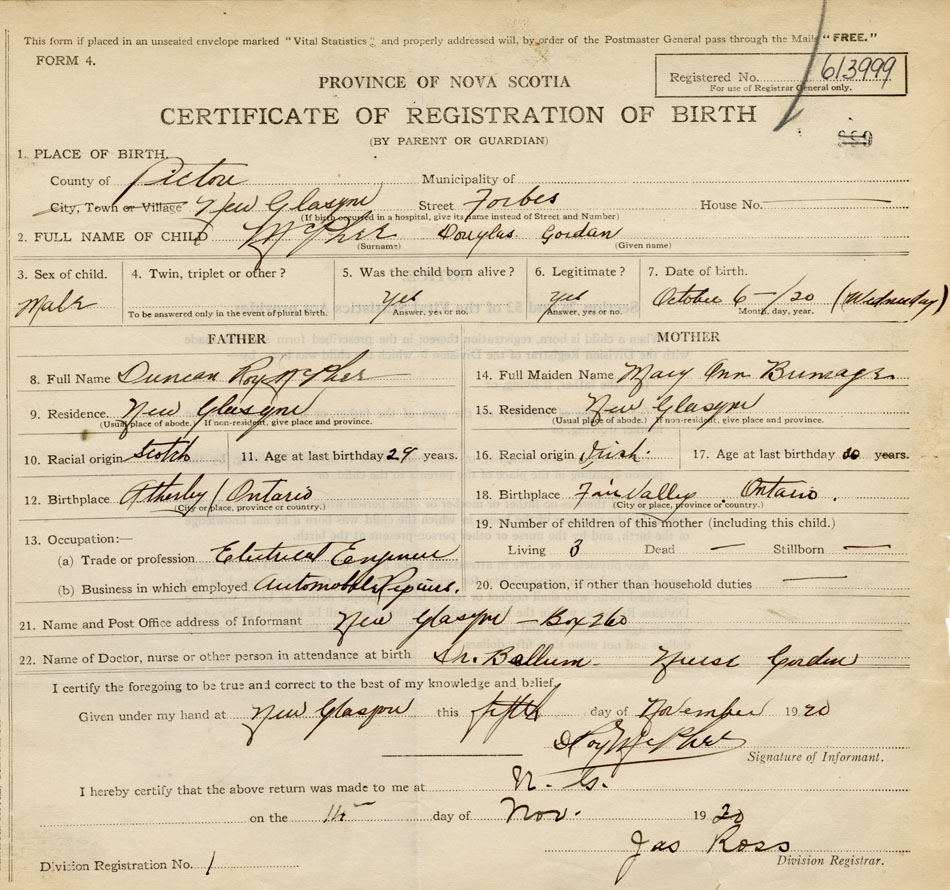 This form if placed in an unsealed envelope marked "Vital Statistics" and properly addressed will, by order of the Postmaster General pass through the Mails "FREE."
FORM 4.
PROVINCE OF NOVA SCOTIA
Registered No. 613999
For use of Registrar General only.
CERTIFICATE OF REGISTRATION OF BIRTH
(BY PARENT OR GUARDIAN)
1. PLACE OF BIRTH.
County of Pictou Municipality of
City, Town or Village New Glasgow Street Forbes House No. —
(If birth occurred in a hospital, give its name instead of Street and Number)
2. FULL NAME OF CHILD McPhee Douglas Gordon
(Surname) (Given name)
3. Sex of child. 4. Twin, triplet or other? 5. Was the child born alive? 6. Legitimate? 7. Date of birth.
Male yes yes October 6–/20 (Wednesday)
To be answered only in the event of plural birth. Answer, yes or no. Answer, yes or no. Month, day, year.
FATHER MOTHER
8. Full Name Duncan Roy McPhee 14. Full Maiden Name Mary Ann
9. Residence. New Glasgow 15. Residence New Glasgow
(Usual place of abode.) If non-resident, give place and province. (Usual place of abode.) If non-resident, give place and province.
10. Racial origin Scotch 11. Age at last birthday 29 years. 16. Racial origin Irish. 17. Age at last birthday 30 years.
12. Birthplace Atherley / Ontario 18. Birthplace Fair Valley . Ontario .
(City or place, province or country.) (City or place, province or country.)
19. Number of children of this mother (including this child.)
13. Occupation:—
(a) Trade or profession Electrical Engineer Living 3 Dead — Stillborn —
(b) Business in which employed Automobile Repairs. 20. Occupation, if other than household duties —
21. Name and Post Office address of Informant New Glasgow – Box 260
22. Name of Doctor, nurse or other person in attendance at birth Dr. Nurse Gordon
I certify the foregoing to be true and correct to the best of my knowledge and belief,
Given under my hand at New Glasgow this fifth day of November 1920
D Roy McPhee
Signature of Informant.
I hereby certify that the above return was made to me at N. G.
on the day of Nov. 1920
Jas Ross
Division Registrar.
Division Registration No. 1